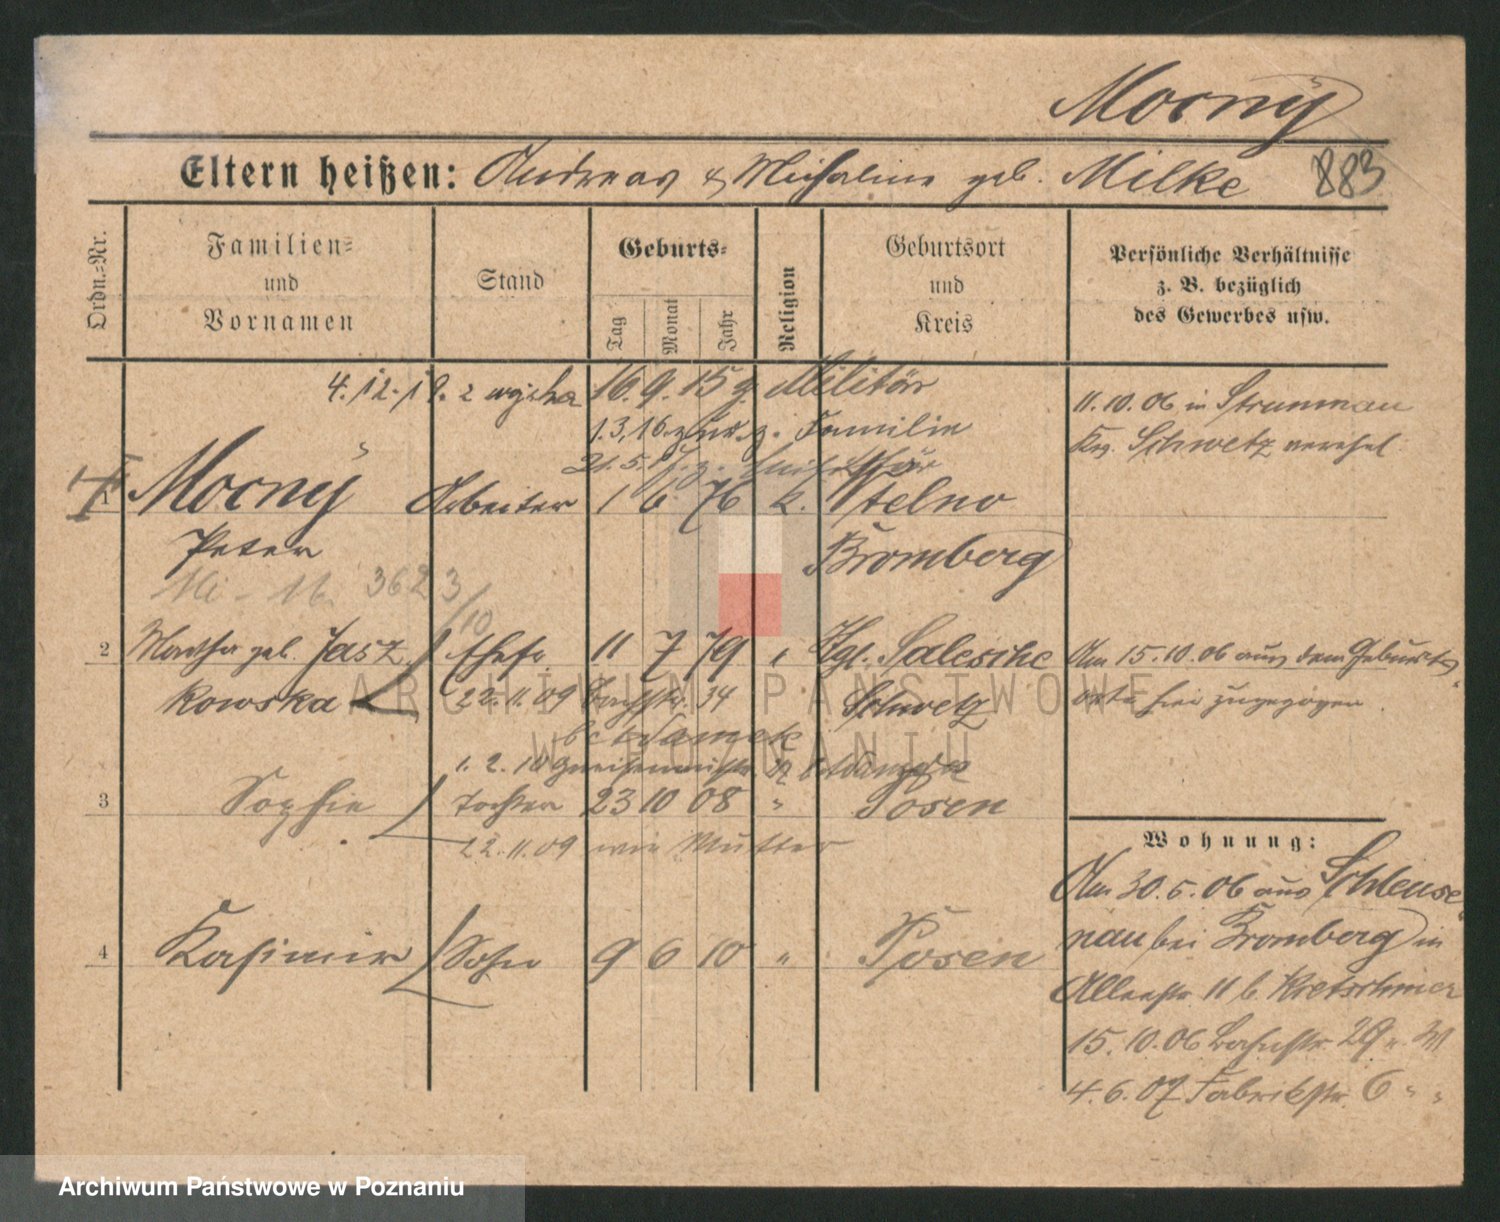 Mocny
Eltern heißen: Andreas & Michaline geb. Milke 883
Ordn.-Nr.
Familien-
und
Vornamen
Stand
Geburts-
Tag
Monat
Jahr
Religion
Geburtsort
und
Kreis
Persönliche Verhältnisse
z. B. bezüglich
des Gewerbes usw.
4.12.18. z wojska 16.9.15 z. Militär
1.3.16 zur. z. Familie
21.5.
11.10.06 in
Krs. Schwetz verehel.
1 Mocny Arbeiter 1 6 76 k. Wtelno
Peter Bromberg
3623/10
2 Martha geb. Jasz Ehefr. 11 7 79 Kgl. Salesche
kowska 22.11.09 34 Schwetz
Am 15.10.06 aus dem Geburts-
orte hier zugezogen.
1.2.10
3 Sophie Tochter 23 10 08 " Posen
22.11.09 wie Mutter
4 Kasimir Sohn 9 6 10 " Posen
Wohnung:
Am 30.5.06 aus Schleuse-
nau bei Bromberg in
Alleestr. 11 b. Kretschmer
15.10.06 Bahnstr. 29
4.6.07 Fabrikstr. 6 " "
ARCHIWUM PAŃSTWOWE
W POZNANIU
Archiwum Państwowe w Poznaniu